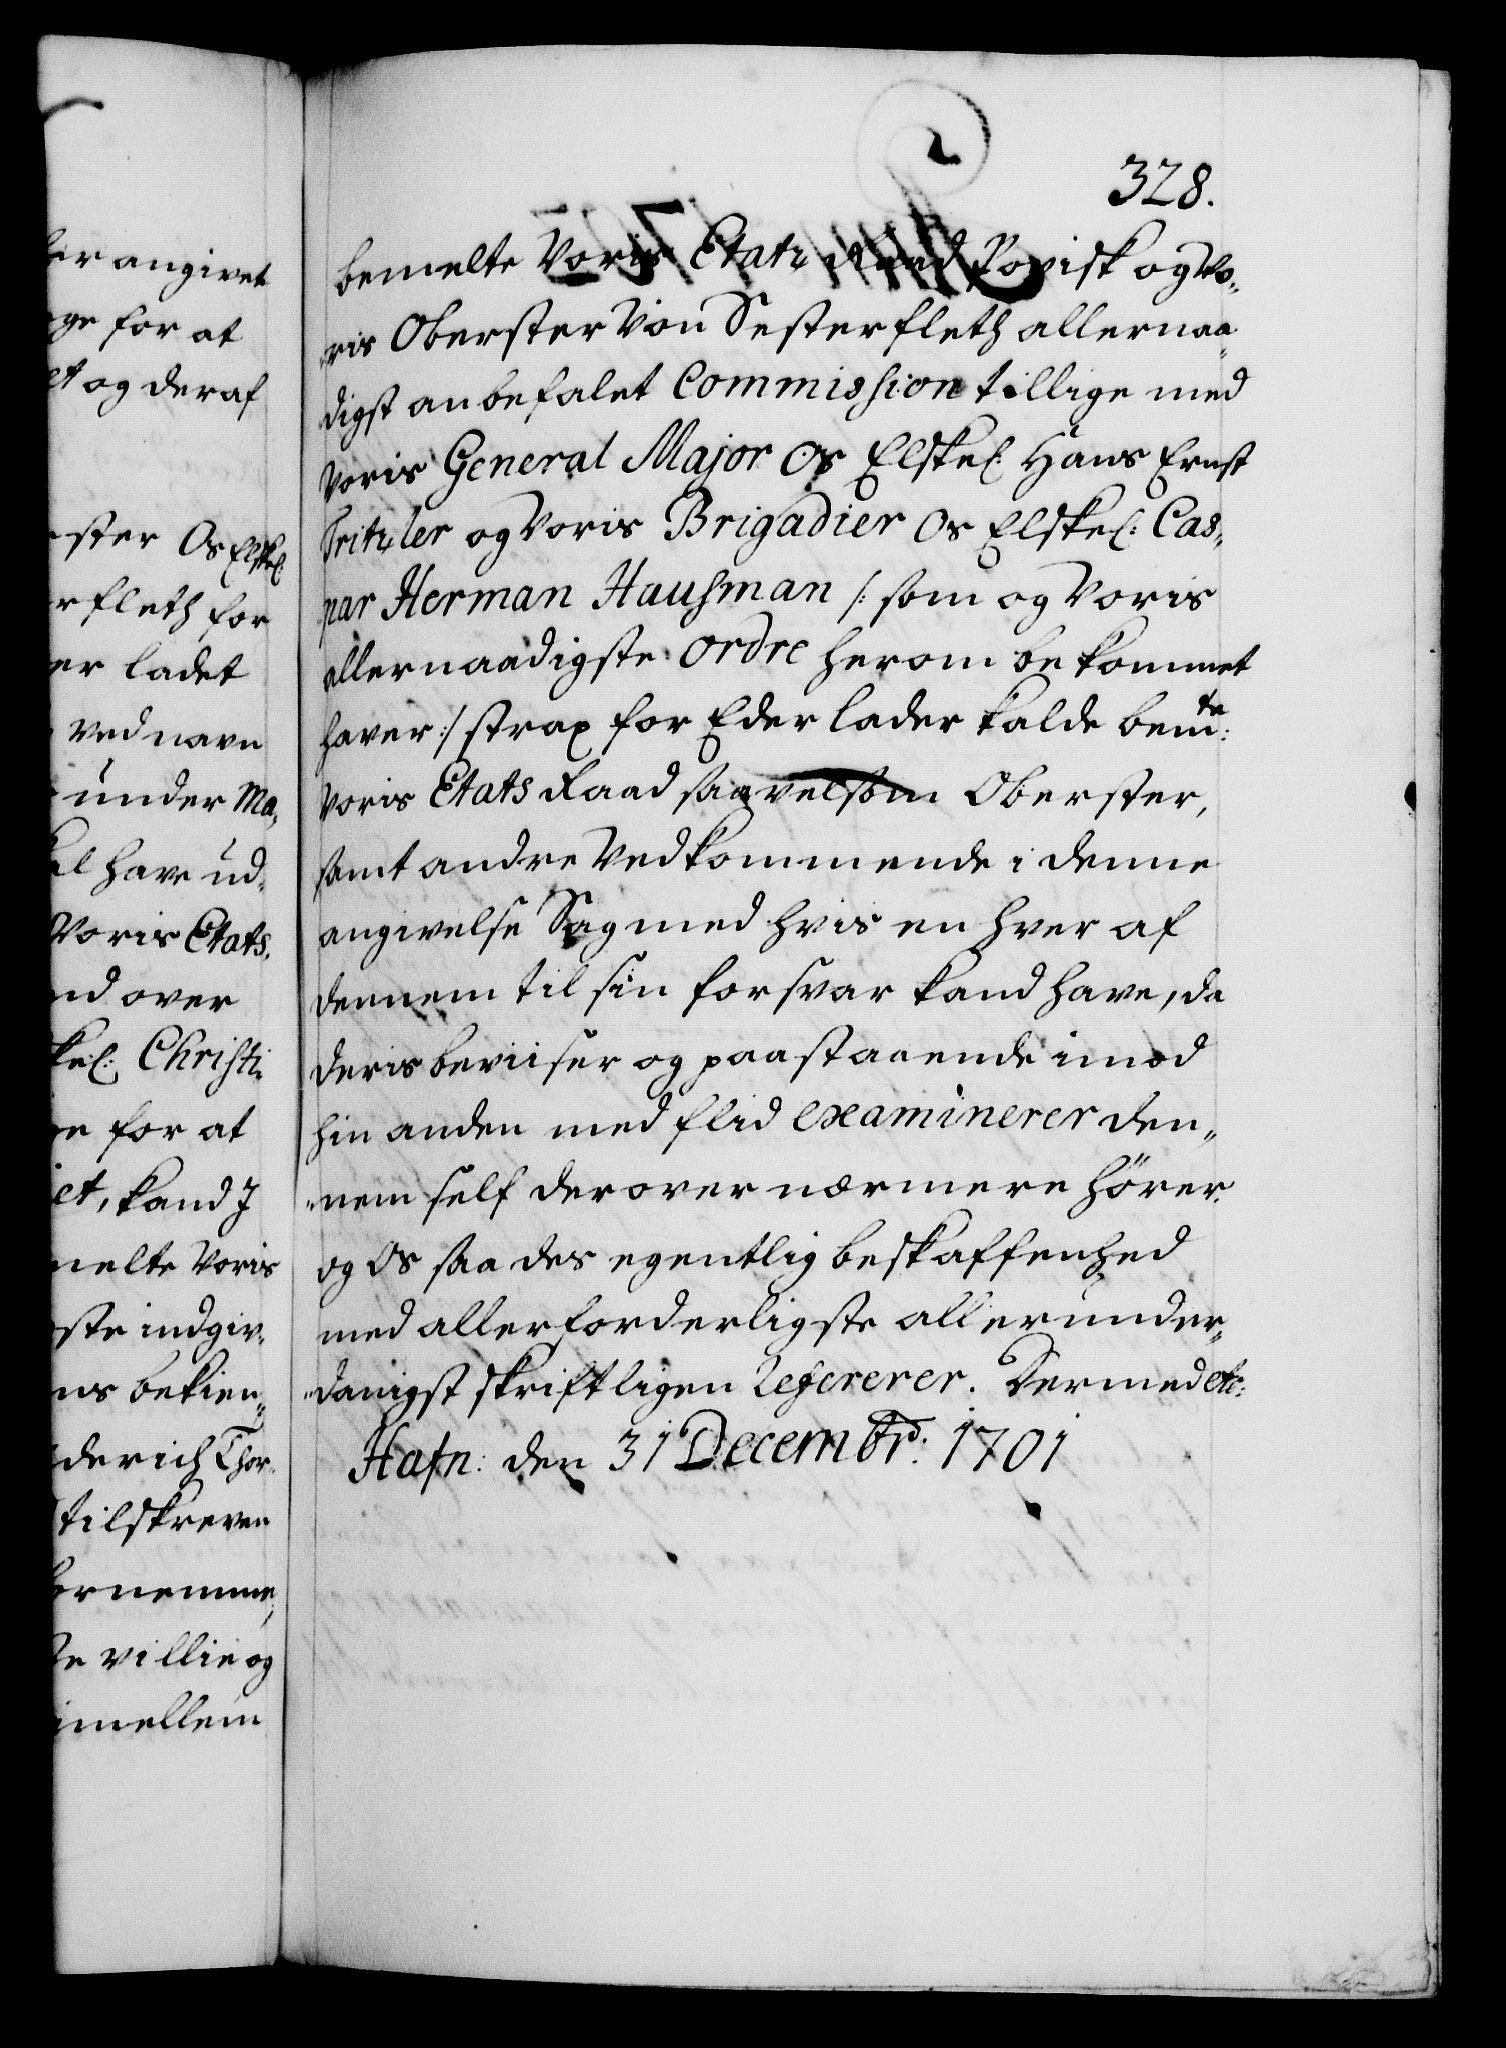 328.
bemelte Voris Etatz Raad Povisk og Vo„
„ris Oberster Von Sesterfleth allernaa„
digst anbefalet Commission tillige med
Voris General Major Os Elskel: Hans Ernst
Tritzler og Voris Brigadier Os Elskel: Cas„
par Herman Hausman /: som og Voris
allernaadigste Ordre herom bekommet
haver :/ strax for Eder lader kalde bemte:
Voris Etats Raad saavelsom Oberster,
samt andre Vedkommende i denne
angivelse Sag med hvis en hver af
dennem til sin forsvar kand have, da
deris beviiser og paastaaende imod
hin anden med flid examinerer den„
„nem self derover nærmere hörer
og Os saa des egentlig beskaffenhed
med allerforderligste allerunder„
„danigst skriftligen refererer. Dermed etc:
Hafn: den 31 Decembr: 1701
er angivet
ge for at
et og deraf
ster Os Elskel:
rfleth for
er ladet
ved navn
under Ma„
al have ud„
Voris Etats„
nd over
kel: Christi„
e for at
et, kand I
melte Voris
ste indgiv„
ns bekien„
derich Thor„
tilskreven
fornemme,
te villie og
imellem